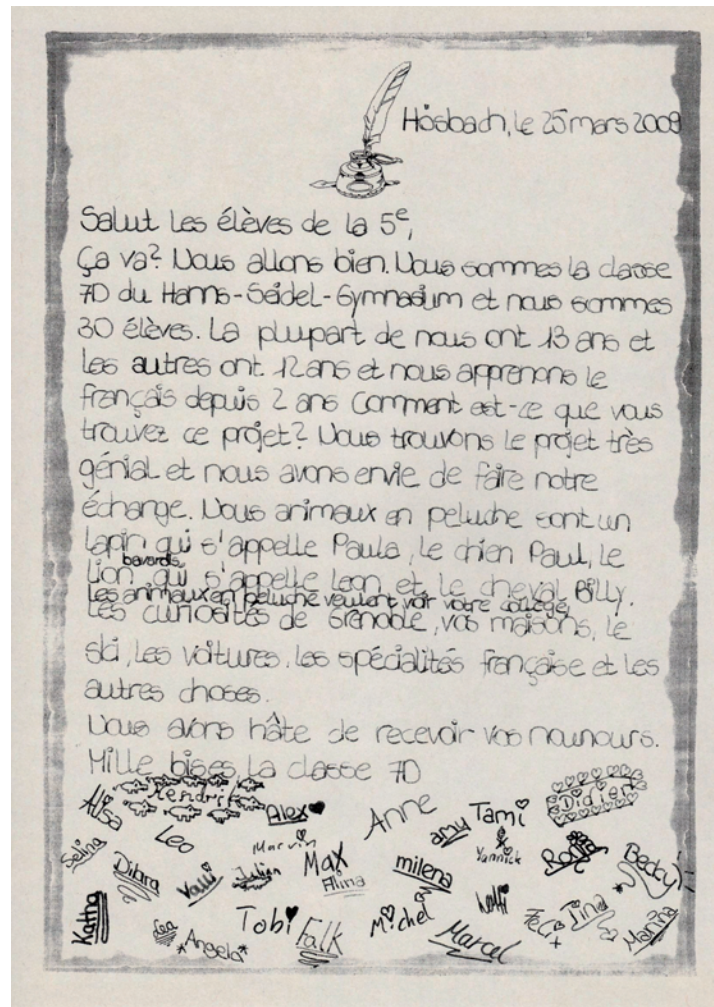 Hösbach, le 25 mars 2009
Salut les élèves de la 5e,
Ça va? Nous allons bien. Nous sommes la classe
7D du Hanns-Seidel-Gymnasium et nous sommes
30 élèves. La plupart de nous ont 13 ans et
les autres ont 12 ans et nous apprenons le
français depuis 2 ans Comment est-ce que vous
trouvez ce projet? Nous trouvons le projet très
génial et nous avons envie de faire notre
échange. Nous animaux en peluche sont un
lapin qui s'appelle Paula, le chien Paul, le
bavards
Lion qui s'appelle Leon et le cheval Billy.
Les animaux en peluche veulent voir votre collège,
les curiosités de Grenoble, vos maisons, le
ski, les voitures, les spécialités française et les
autres choses.
Nous avons hâte de recevoir vos nounours.
Mille bises La classe 7D
Alisa Hendrik Alex Anne Tami Didier
Selina Leo Marvin amy Yannick
Dilara Julian Max Alina milena Becky
Katha Lea *Angela* Tobi Falk Michel Marcel Felix Tina Marina